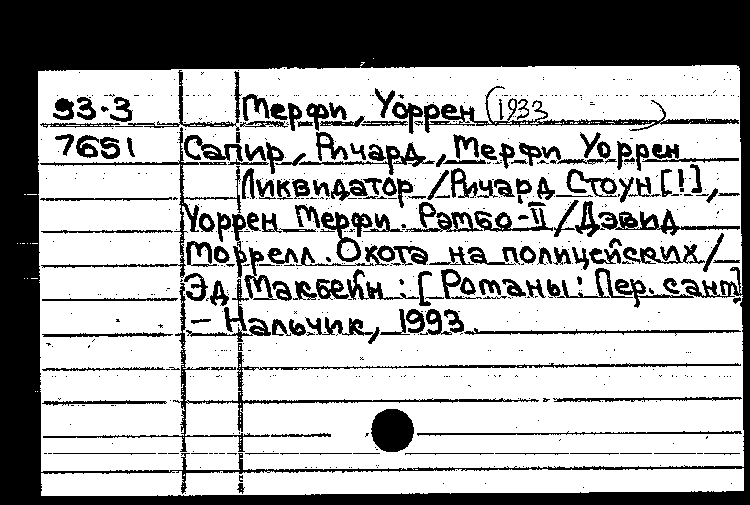 93-3 Мерфи, Уоррен (1933 )
7651 Сапир, Ричард, Мерфи Уоррен
Ликвидатор /Ричард Стоун [!],
Уоррен Мерфи. Рэмбо-II /Дэвид
Моррелл. Охота на полицейских/
Эд Макбейн : [Романы: Пер. с англ]
— Нальчик, 1993.